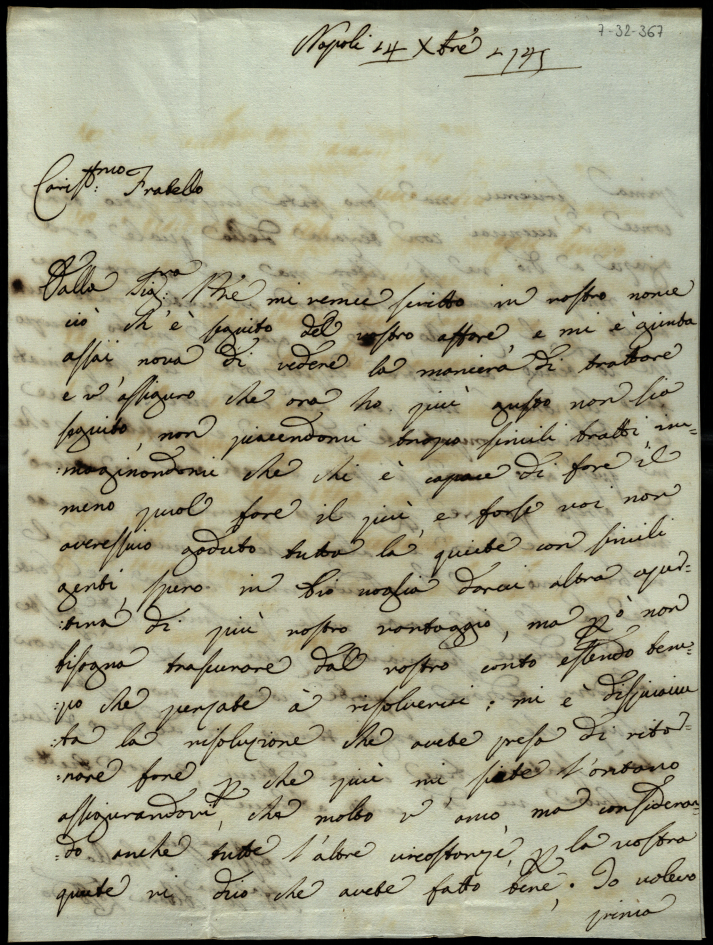 7-32-367
Napoli 14 Xbre 1745
Cariss:mo Fratello
Dalla Sig:ra Rhè mi venne scritto in vostro nome
ciò ch'è seguito del vostro affare, e mi è giunta
assai nova di vedere la manierà di trattare
e v'assiguro che ora ho più gusto non sia
seguito, non piacendomi tropo simili tratti im=
:maginandomi che chi è capace di fare il
meno puol fare il più, e forse voi non
averessivo goduto tutta la quiete con simili
genti, spero in Dio voglia darvi altra apert=
:tura di più vostro vantaggio, ma però non
bisogna trascurare dal vostro canto essendo tem=
:po che pensate à risolvervi; mi è dispiaciu
:ta la risoluzione che avete presa di rito=
:nare fore p che più mi siete lontano
assigurandovi, che molto v'amo ma consideran=
:do anche tutte l'altre circostanze, p la vostra
quiete vi dico che avete fatto bene. Io volevo
prima